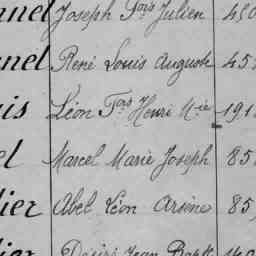 nnel Joseph Fois Julien 450
nnel René Louis Auguste 45
is Léon Fois Henri Mie 191
el Marcel Marie Joseph 85
lier Abel Léon Arsène 85
lier Désiré Jean Bapt